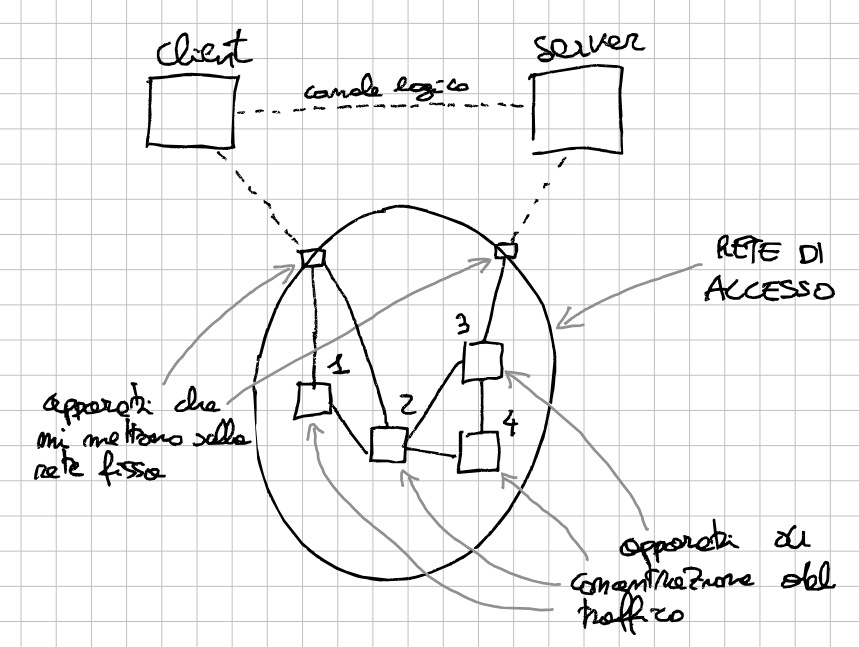 client
server
canale logico
RETE DI
ACCESSO
3
1
2
4
apparati che
mi mettono sulla
rete fissa
apparati di
concentrazione del
traffico